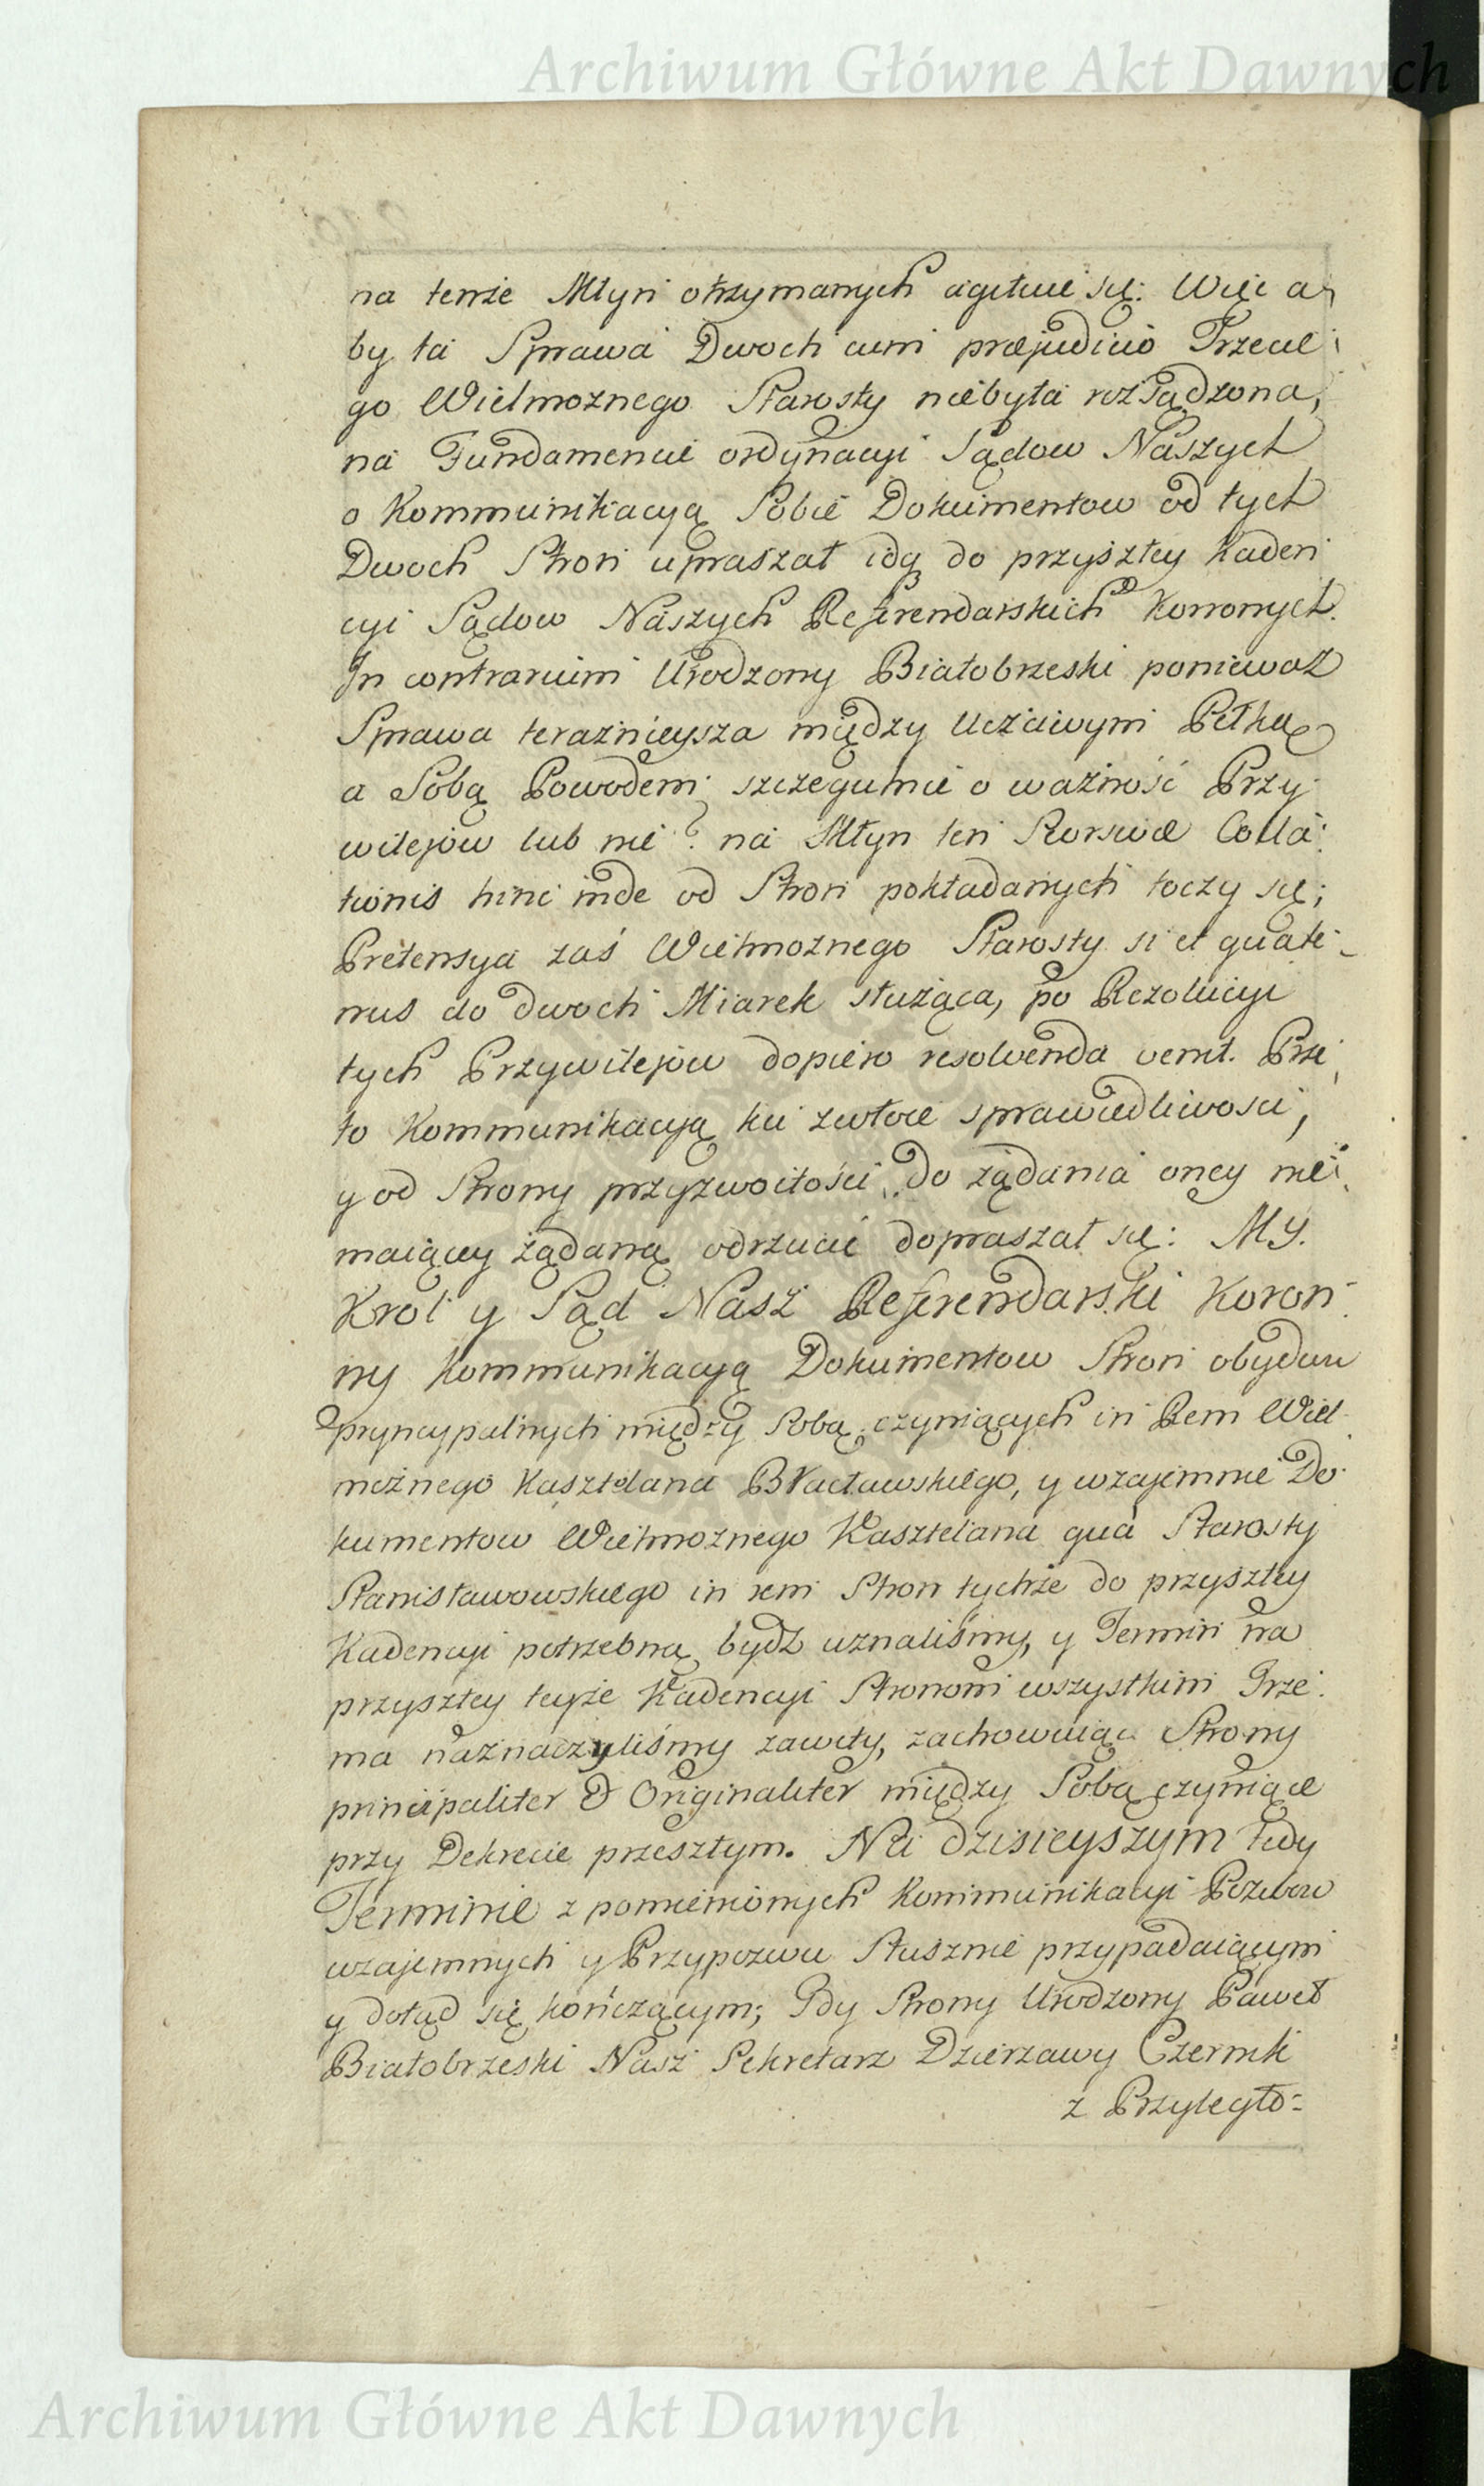 Archiwum Główne Akt Dawnych
na tenże Młyn otrzymanych agituie się: Więc a-
by ta Sprawa Dwoch cum præjudicio Trzecie-
go Wielmożnego Starosty niebyła rozsądzona,
na Fundamencie ordynacyi Sądow Naszych
o Kommunikacyą Sobie Dokumentow od tych
Dwoch Stron upraszał idq do przyszłey Kaden
cyi Sądow Naszych Referendarskich Koronnych.
In contrarium Urodzony Białobrzeski ponieważ
Sprawa teraznieysza między Uczciwymi Pełką
a Sobą Powodem szczegulnie o ważność Przy-
wilejow lub nie? na Młyn ten Rorswæ Colla-
tionis hinc inde od Stron pokładanych toczy się;
Pretensya zaś Wielmożnego Starosty si et quate-
nus do dwoch Miarek służąca, po Rezolucyi
tych Przywilejow dopiero resolvenda venit. Prze
to Kommunikacyą ku zwłoce sprawiedliwosci,
y od Strony przyzwoitości do żądania oney nie-
maiącey żądaną odrzucić dopraszał się: My.
Krol y Sąd Nasz Referendarski Koron-
ny Kommunikacyą Dokumentow Stron obydwu
pryncypalnych między Sobą czyniących in Rem Wiel-
możnego Kasztelana Bracławskiego, y wzajemnie Do-
kumentow Wielmożnego Kasztelana qua Starosty
Stanisławowskiego in rem Stron tychże do przyszłey
Kadencyi potrzebną bydź uznaliśmy, y Termin na
przyszłey teyże Kadencyi Stronom wszystkim Trze-
ma naznaczyliśmy zawity, zachowuiąc Strony
principaliter & Originaliter między Sobą czyniące
przy Dekrecie przeszłym. Na dzisieyszym tedy
Terminie z pomienionych Kommunikacyi Pozwow
wzajemnych y Przypozwu Słusznie przypadaiącym
y dotąd się kończącym; Gdy Strony Urodzony Paweł
Białobrzeski Nasz Sekretarz Dzierzawy Czernik
z Przyległo=
Archiwum Główne Akt Dawnych